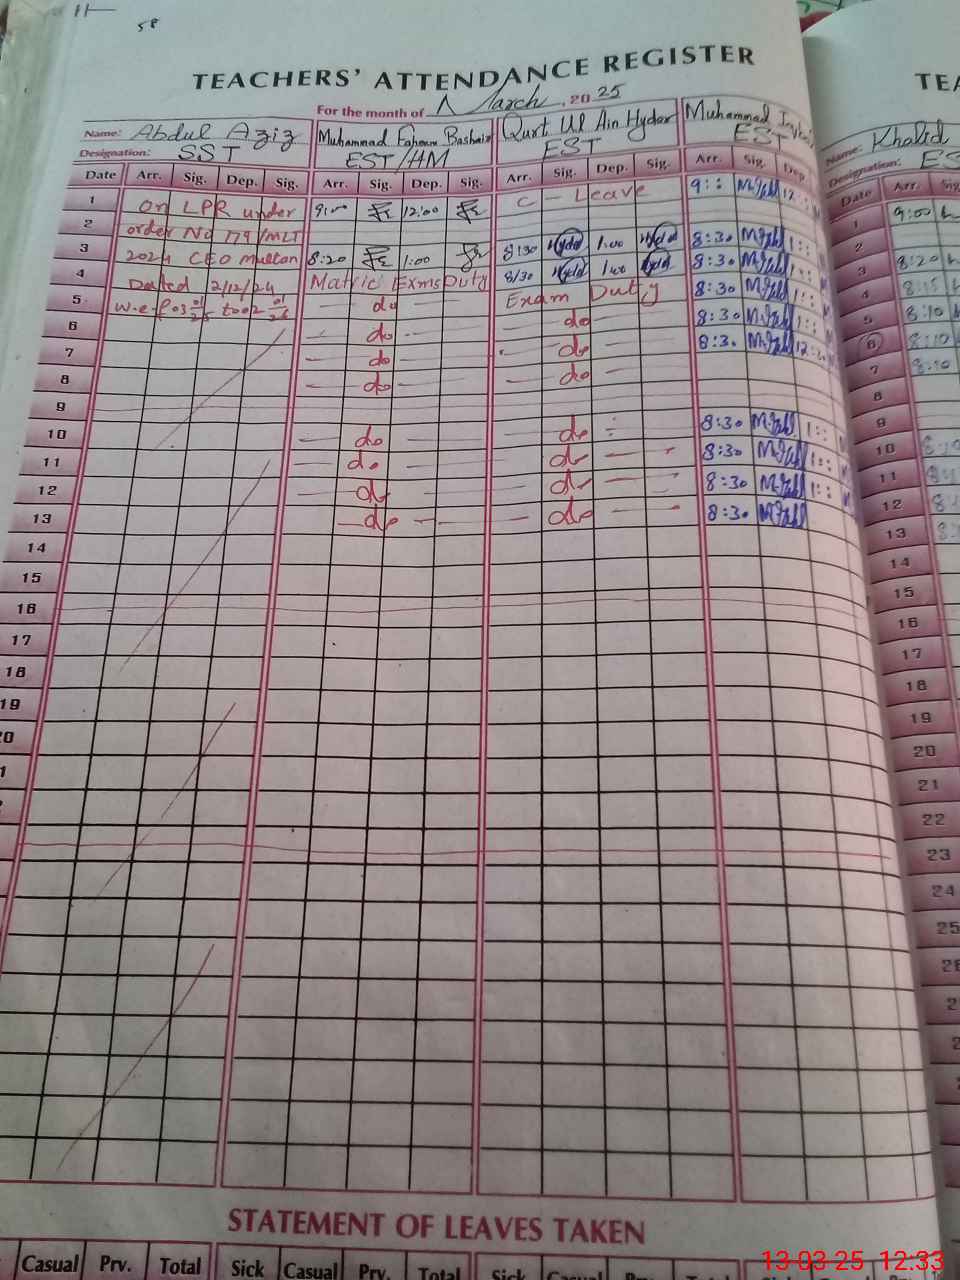 58
TEACHERS' ATTENDANCE REGISTER
For the month of March, 2025
Name: Abdul Aziz Muhammad Faheem Qurt Ul Ain Hyder Muhammad
Designation: SST EST/HM EST EST
Date Arr. Sig. Dep. Sig. Arr. Sig. Dep. Sig. Arr. Sig. Dep. Sig. Arr. Sig. Dep.
1 On LPR under 9:00 12:00 C - Leave 9::
2 order No 179/MLT
3 2024 CEO Multan 8:20 1:00 8:30 1:00 8:30 1::
4 Dated 2/12/24 Matric Exms Duty 8/30 1:00 8:30 1::
5 w.e.f 03 01/25 to 02 01/26 do Exam Duty 8:30 1::
6 do do 8:30 1::
7 do do 8:30
8 do do
9
10 do do 8:30 1::
11 do do 8:30 1::
12 do do 8:30 1::
13 do do 8:30
14
15
16
17
18
19
STATEMENT OF LEAVES TAKEN
Casual Prv. Total Sick Casual Prv. Total Sick Casual Prv. Total
TEA
Name: Khalid
Designation: ES
Date Arr.
1 9:00
2
3 8:20
4 8:15
5 8:10
6 8:10
7 8:10
8
9
10
11
12
13
14
15
16
17
18
19
20
21
22
23
24
25
13-03-25 12:33